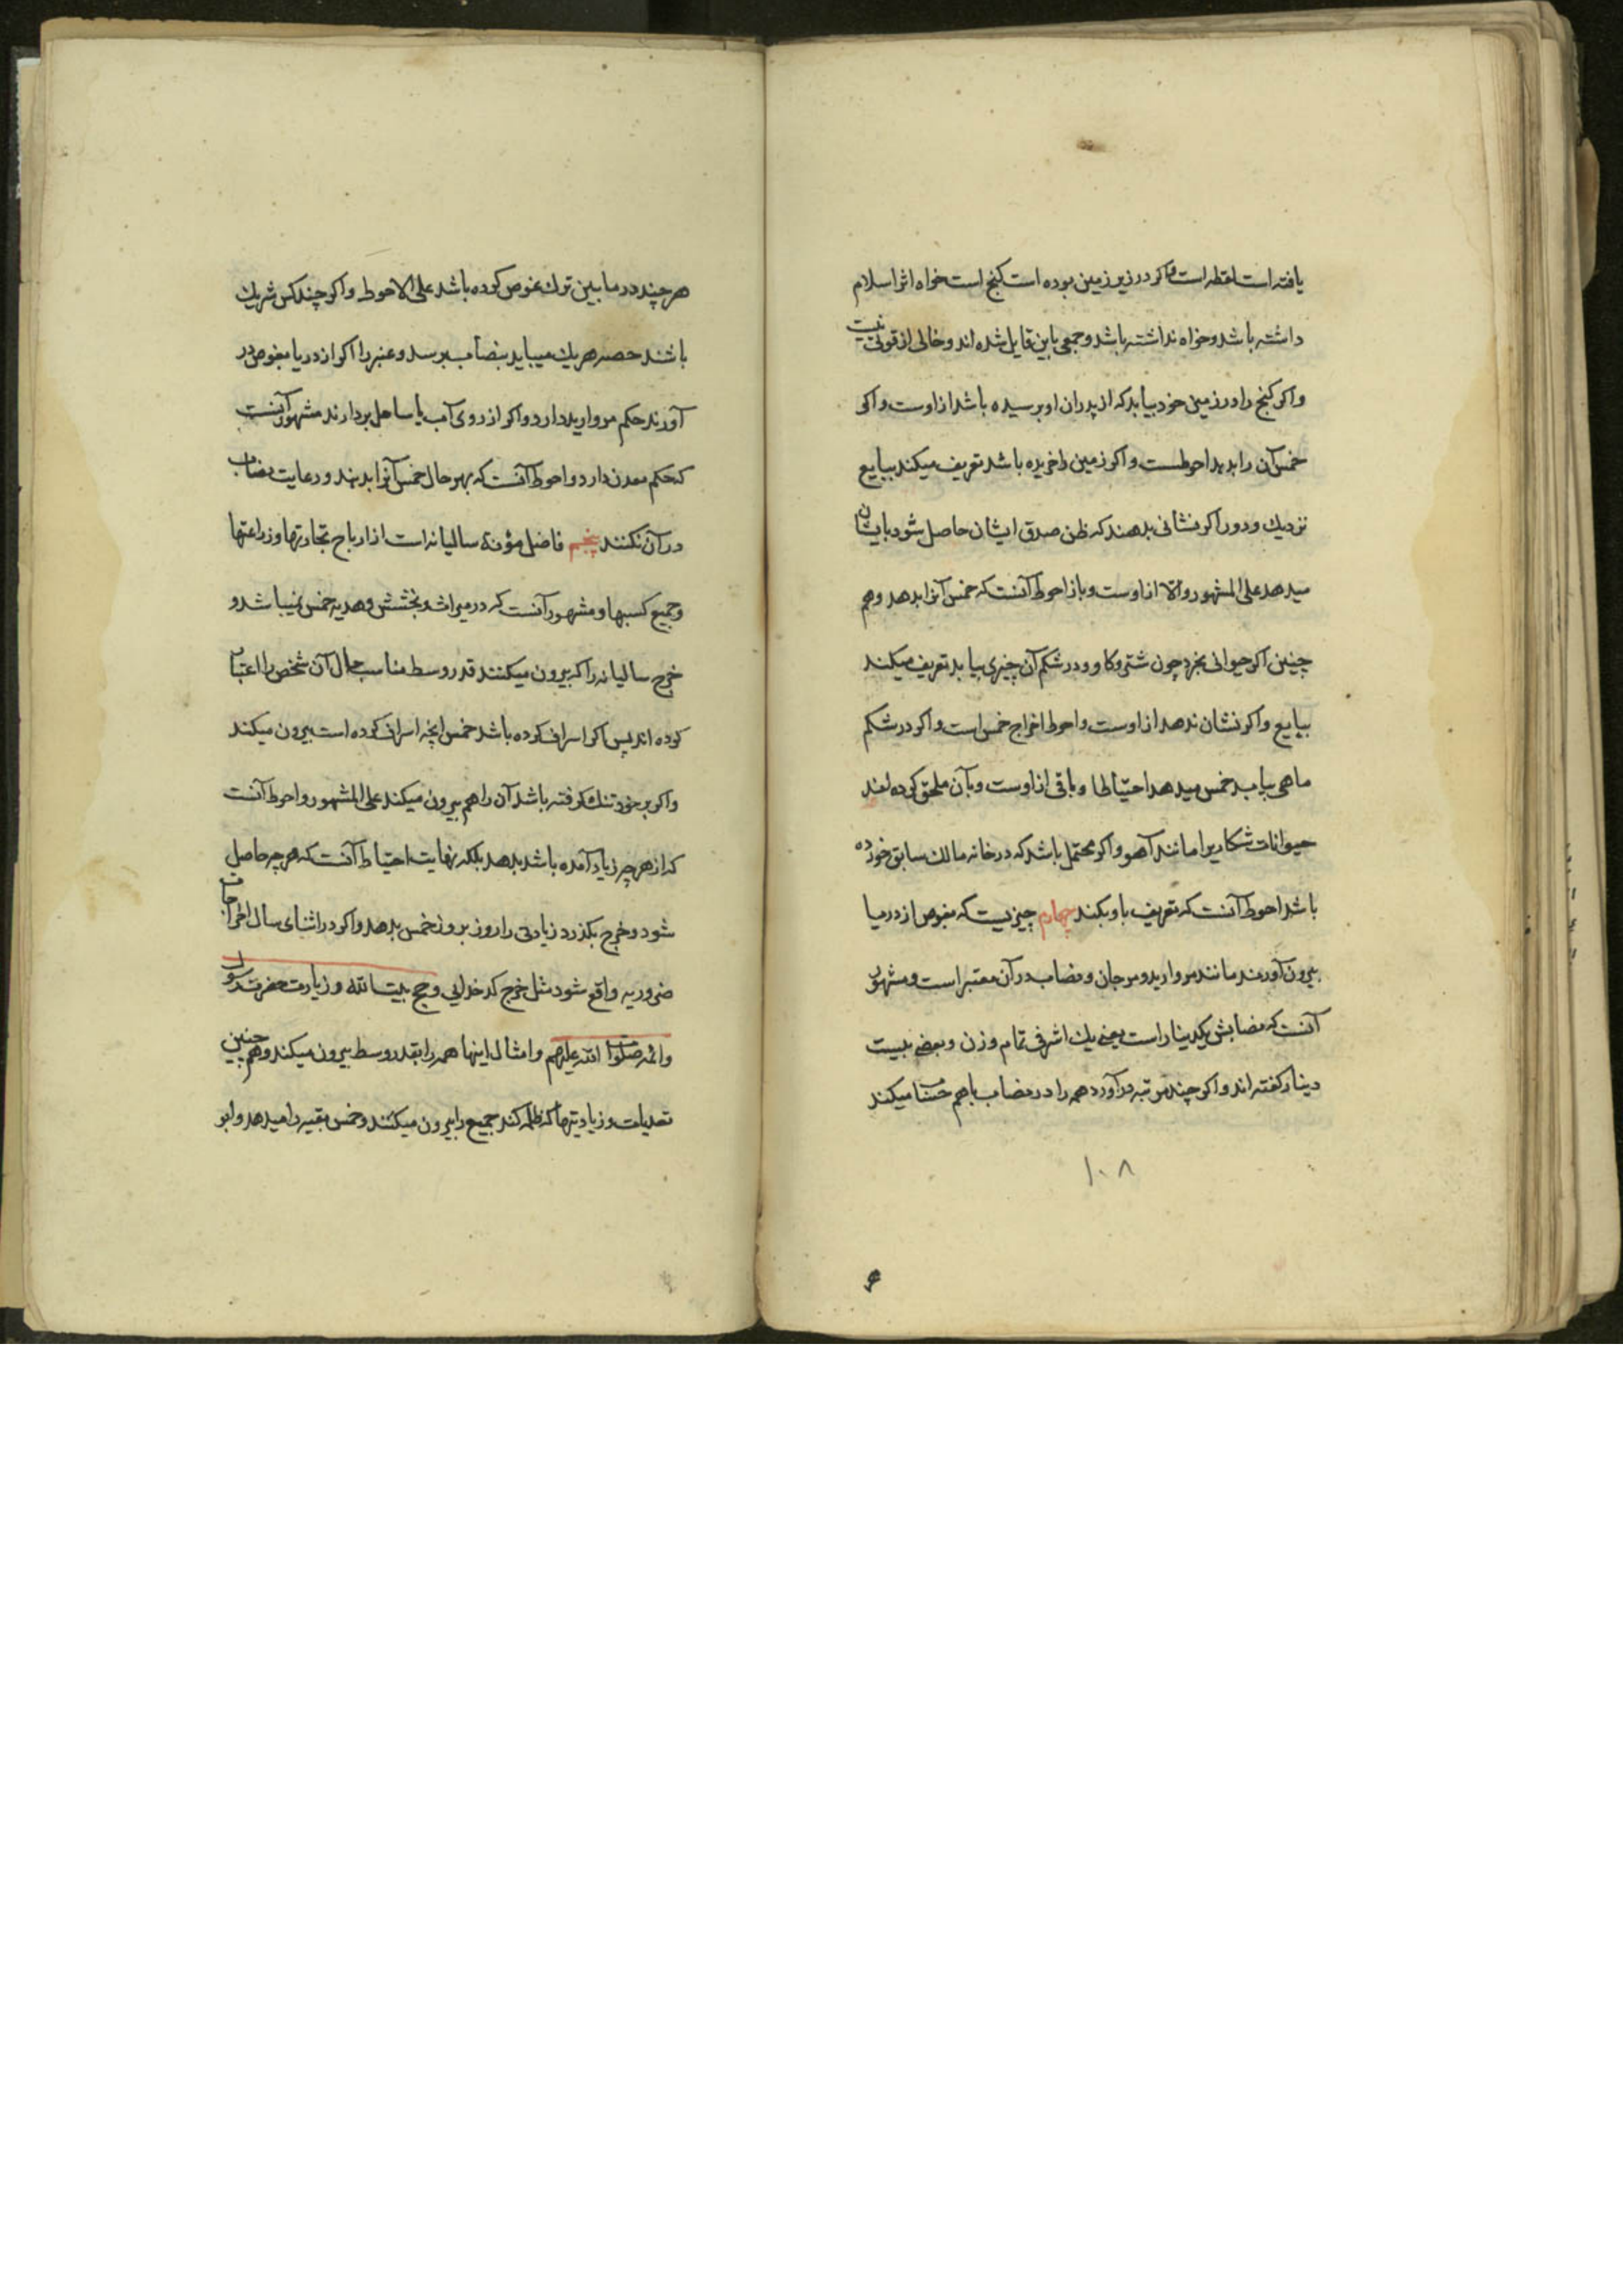 یافته است لقطه است و اکر در زیر زمین بوده است کنج است خواه اثر اسلام
داشته باشد و خواه نداشته باشد و جمعی باین قایل شده اند و خالی از قوتی نیست
و اکر کنج را در زمین خود بیابد که از پدران او برسیده باشد از اوست و اکر
خمس آن را بدهد احوطست و اکر زمین را خریده باشد تعریف میکند ببایع
نزدیک و دور اکر نشانی بدهند که ظن صدق ایشان حاصل شود بایشان
میدهد علی المشهور و الا از اوست و باز احوط آنست که خمس آنرا بدهد و هم
چنین اکر حیوانی بخرد چون شتر و کاو و در شکم آن چیزی بیابد تعریف میکند
ببایع و اکر نشان ندهد از اوست و احوط اخراج خمس است و اکر در شکم
ماهی بیابد خمس میدهد احتیاطا و باقی از اوست و بآن ملحق کرده اند
حیوانات شکاریرا مانند آهو و اکر محتمل باشد که در خانه مالک سابق خورده
باشد احوط آنست که تعریف باو بکند چهارم چیزیست که بغوص از دریا
بیرون آورند مانند مروارید و مرجان و نصاب در آن معتبر است و مشهور
آنست که نصابش یکدینار است یعنی یک اشرفی تمام وزن و بعضی بیست
دینار کفته اند و اکر چند مرتبه در آورد همه را در نصاب باهم حساب میکند
۱۰۸
هر چند در مابین ترک غوص کرده باشد علی الاحوط و اکر چند کس شریک
باشند حصه هر یک میباید بنصاب برسد و عنبر را اکر از دریا بغوص در
آورند حکم مروارید دارد و اکر از روی آب یا ساحل بردارند مشهور آنست
که حکم معدن دارد و احوط آنست که بهر حال خمس آنرا بدهند و رعایت نصاب
در آن نکنند پنجم فاضل مؤنة سالیانه است از ارباح تجارتها و زراعتها
و جمیع کسبها و مشهور آنست که در میراث و بخشش و هدیه خمس نمیباشد و
خرج سالیانه را که بیرون میکنند قدر وسط مناسب حال آن شخص را اعتبار
کرده اند پس اکر اسراف کرده باشد خمس آنچه اسراف کرده است بیرون میکند
و اکر بر خود تنک کرفته باشد آن را هم بیرون میکند علی المشهور و احوط آنست
که از هر چه زیاد آمده باشد بدهد بلکه نهایت احتیاط آنست که هر چه حاصل
شود و خرج بکذرد زیادتی را روز بروز خمس بدهد و اکر در اثنای سال اخراجات
ضروریه واقع شود مثل خرج کدخدایی و حج بیت الله و زیارت حضرت رسول
و ائمه صلوات الله علیهم و امثال اینها همه را بقدر وسط بیرون میکند و هم چنین
تعدیات و زیادتیها که ظلمه کند جمیع را بیرون میکنند و خمس بقیه را میدهد و ابو